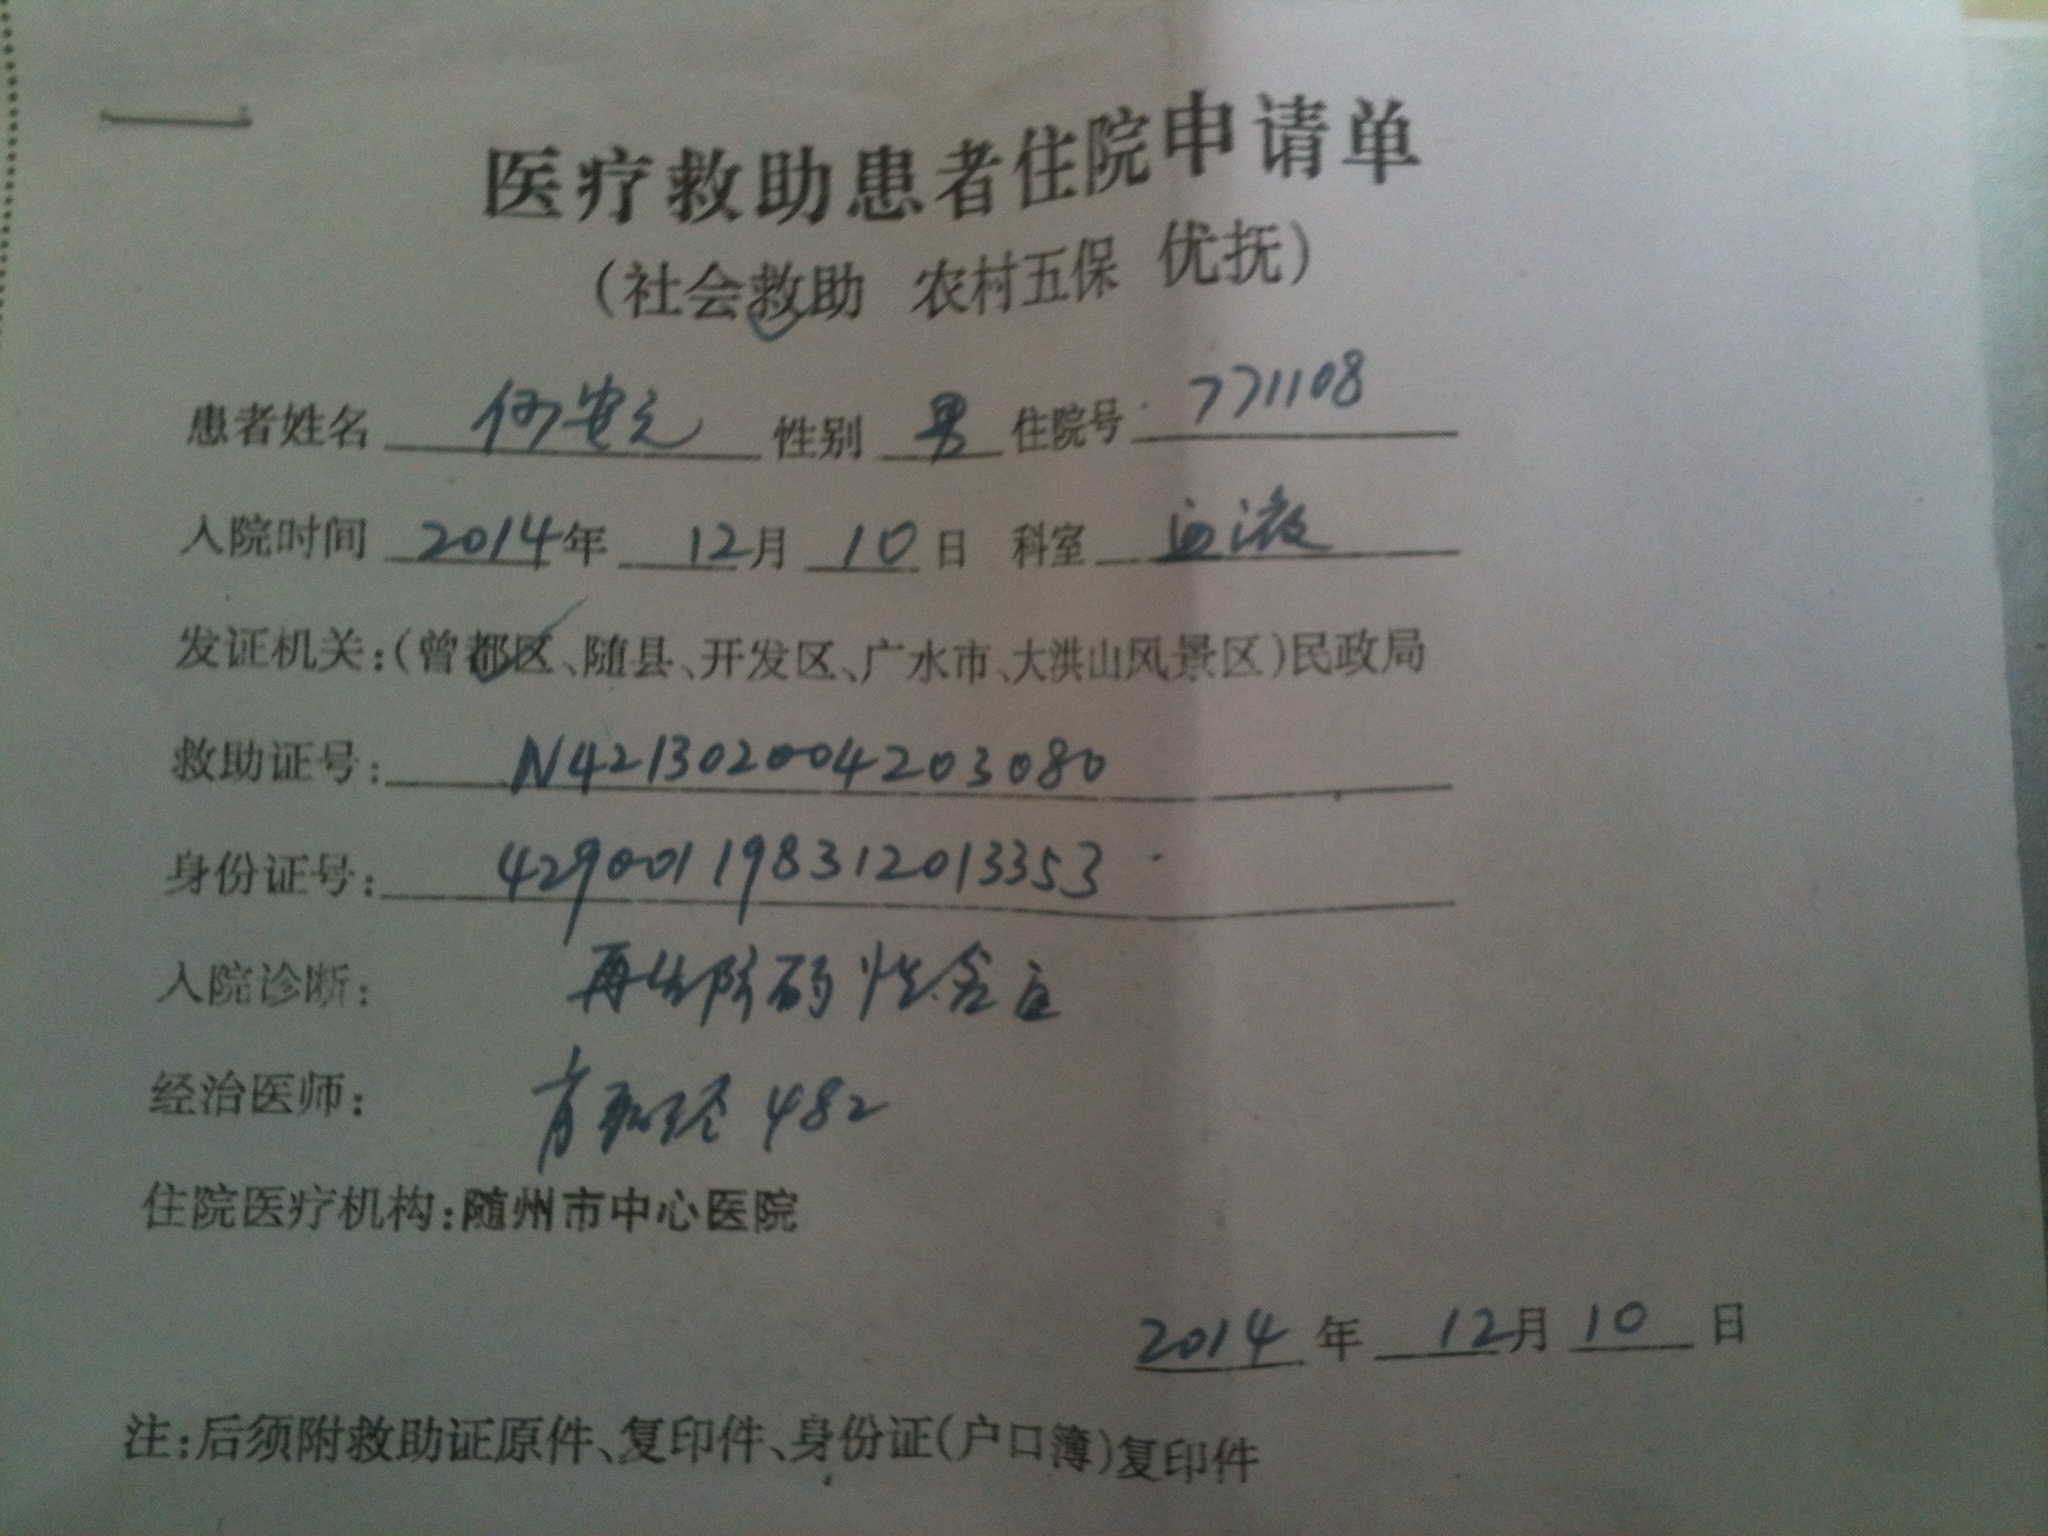 医疗救助患者住院申请单
(社会救助 农村五保 优抚)
患者姓名 何 性别 男 住院号 771108
入院时间 2014年 12月 10日 科室 血液
发证机关:(曾都区、随县、开发区、广水市、大洪山风景区)民政局
救助证号: N421302004203080
身份证号: 429001198312013353
入院诊断: 再生障碍性贫血
经治医师: 肖 482
住院医疗机构:随州市中心医院
2014年 12月 10日
注:后须附救助证原件、复印件、身份证(户口簿)复印件